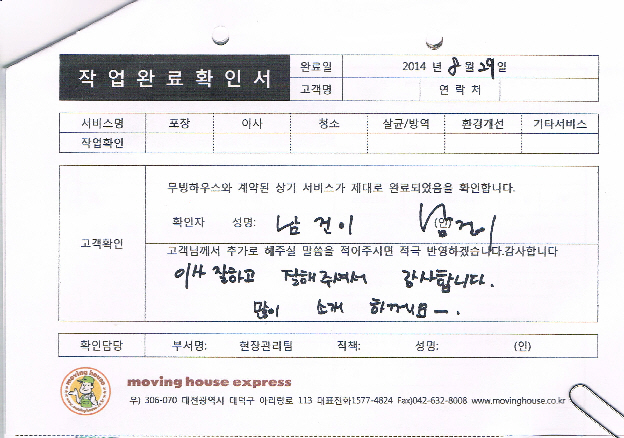 작업완료확인서
완료일 2014 년 8 월 29 일
고객명 연 락 처
서비스명 포장 이사 청소 살균/방역 환경개선 기타서비스
작업확인
고객확인
무빙하우스와 계약된 상기 서비스가 제대로 완료되었음을 확인합니다.
확인자 성명: 남 건 이 (인)
고객님께서 추가로 해주실 말씀을 적어주시면 적극 반영하겠습니다.감사합니다
이사 잘하고 잘해주셔서 감사합니다.
많이 소개 하께요ㅡ.
확인담당 부서명: 현장관리팀 직책: 성명: (인)
moving house
moving house express
우) 306-070 대전광역시 대덕구 아리랑로 113 대표전화1577-4824 Fax)042-632-8008 www.movinghouse.co.kr